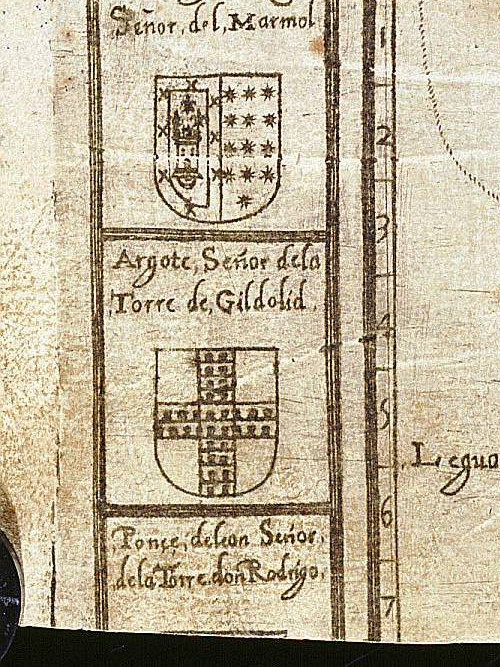 Señor, del, Marmol
Argote, Señor dela
Torre de, Gildolid,
Ponçe, deleon Señor,
dela Torre don Rodrigo,
1
2
3
4
5
6
7
Legua